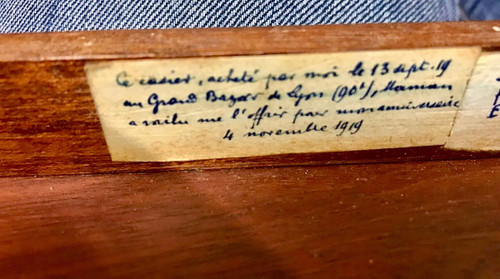 Ce casier, acheté par moi le 13 sept. 19
au Grand Bazar de Lyon (90f), Maman
a voulu me l'offrir pour mon anniversaire
4 novembre 1919